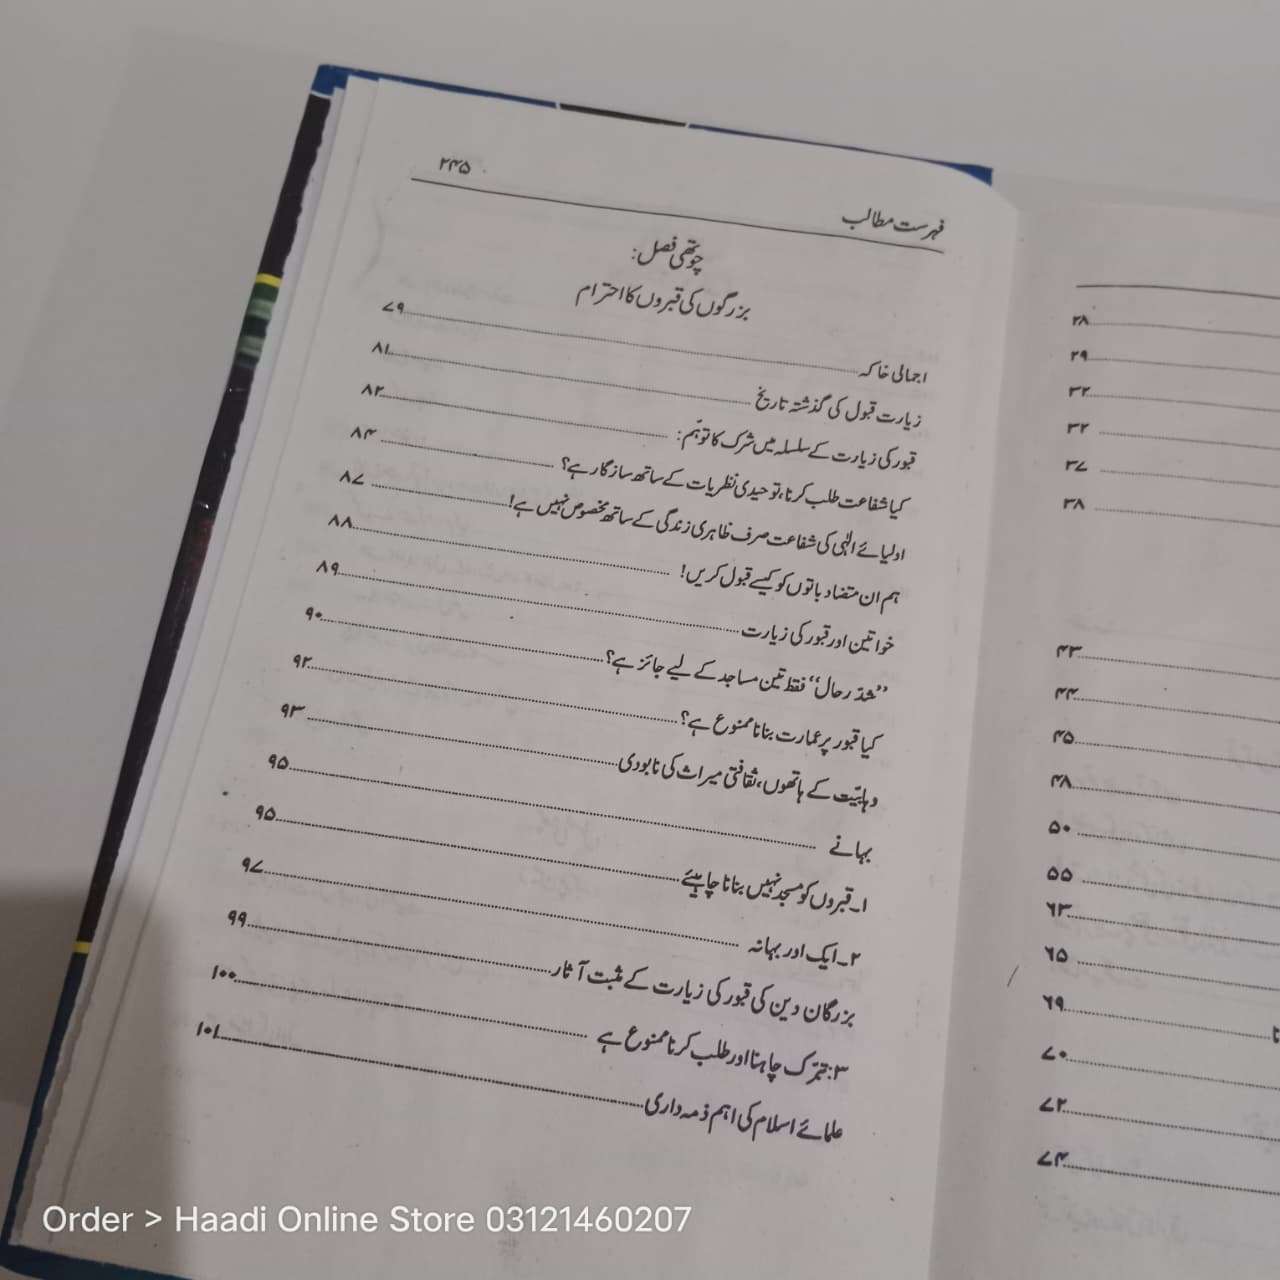 فہرست مطالب ۲۴۵
چوتھی فصل:
بزرگوں کی قبروں کا احترام
اجمالی خاکہ ۷۹
زیارت قبول کی گذشتہ تاریخ ۸۱
قبور کی زیارت کے سلسلہ میں شرک کا توہّم: ۸۲
کیا شفاعت طلب کرنا، توحیدی نظریات کے ساتھ سازگار ہے؟ ۸۴
اولیائے الٰہی کی شفاعت صرف ظاہری زندگی کے ساتھ مخصوص نہیں ہے! ۸۷
ہم ان متضاد باتوں کو کیسے قبول کریں! ۸۸
خواتین اور قبور کی زیارت ۸۹
”شدّ رحال“ فقط تین مساجد کے لیے جائز ہے؟ ۹۰
کیا قبور پر عمارت بنانا ممنوع ہے؟ ۹۲
وہابیّت کے ہاتھوں، ثقافتی میراث کی نابودی ۹۳
بہانے ۹۵
۱۔ قبروں کو مسجد نہیں بنانا چاہیئے ۹۵
۲۔ ایک اور بہانہ ۹۷
بزرگان دین کی قبور کی زیارت کے مثبت آثار ۹۹
۳: تبرّک چاہنا اور طلب کرنا ممنوع ہے ۱۰۰
علمائے اسلام کی اہم ذمہ داری ۱۰۱
۲۸
۲۹
۳۲
۳۲
۳۷
۳۸
۴۳
۴۴
۴۵
۴۸
۵۰
۵۵
۶۳
۶۵
۶۹
۷۰
۷۲
۷۴
Order > Haadi Online Store 03121460207